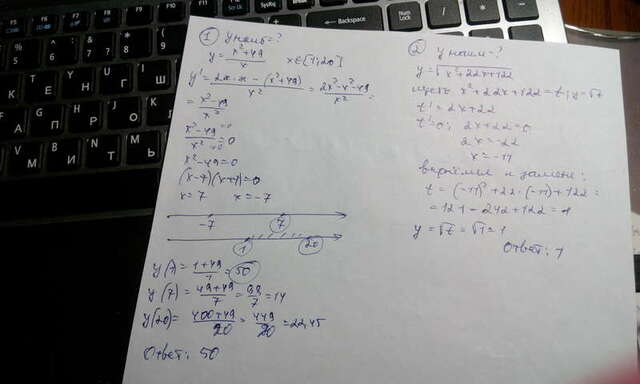 ① y наиб=?
y = (x²+49)/x    x∈[1;20]
y' = (2x·x - (x²+49))/x² = (2x²-x²-49)/x² =
= (x²-49)/x²
(x²-49)/x² = 0
x²-49=0
(x-7)(x+7)=0
x=7    x=-7
-7    7
1    20
y(1) = (1+49)/1 = 50
y(7) = (49+49)/7 = 98/7 = 14
y(20) = (400+49)/20 = 449/20 = 22,45
Ответ: 50
② y наим-?
y=√(x²+22x+122)
пусть x²+22x+122=t; y=√t
t' = 2x+22
t'=0; 2x+22=0
2x=-22
x=-11
вернёмся к замене:
t = (-11)²+22·(-11)+122 =
= 121-242+122=1
y=√t=√1=1
Ответ: 1
Backspace
Num Lock
Home
Enter